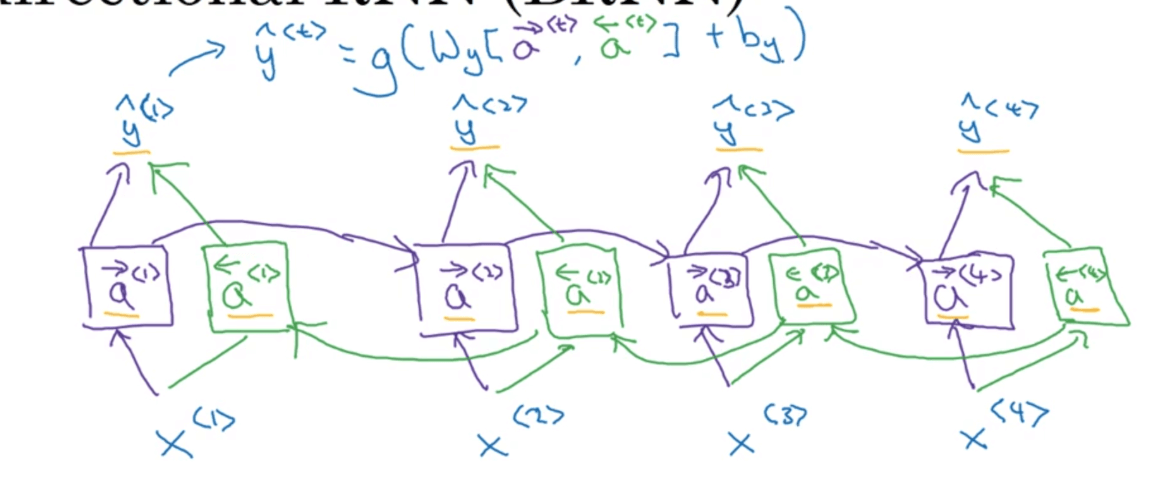 directional RNN (BRNN)
ŷ<t> = g(Wy[a→<t>, a←<t>] + by)
ŷ<1> ŷ<2> ŷ<3> ŷ<4>
a→<1> a←<1> a→<2> a←<2> a→<3> a←<3> a→<4> a←<4>
x<1> x<2> x<3> x<4>